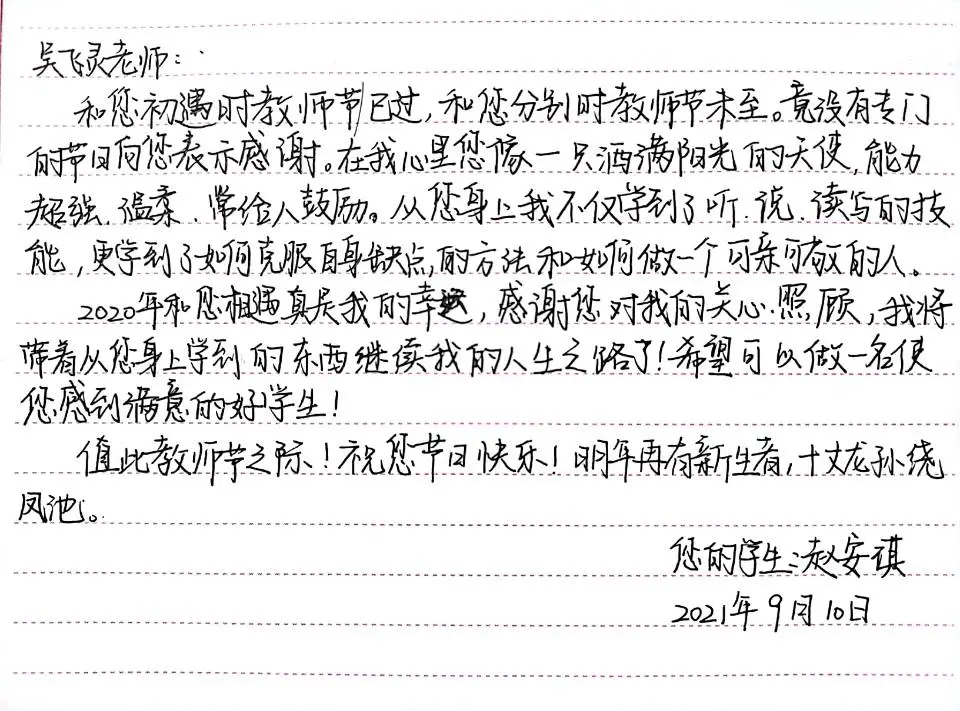 吴飞灵老师：
和您初遇时教师节已过，和您分别时教师节未至。竟没有专门
的节日向您表示感谢。在我心里您像一只洒满阳光的天使，能力
超强、温柔、常给人鼓励。从您身上我不仅学到了听、说、读写的技
能，更学到了如何克服自身缺点的方法和如何做一个可亲可敬的人。
2020年和您相遇真是我的幸运，感谢您对我的关心、照顾，我将
带着从您身上学到的东西继续我的人生之路了！希望可以做一名使
您感到满意的好学生！
值此教师节之际！祝您节日快乐！明年再有新生者，十丈龙孙绕
凤池。
您的学生：赵安琪
2021年9月10日